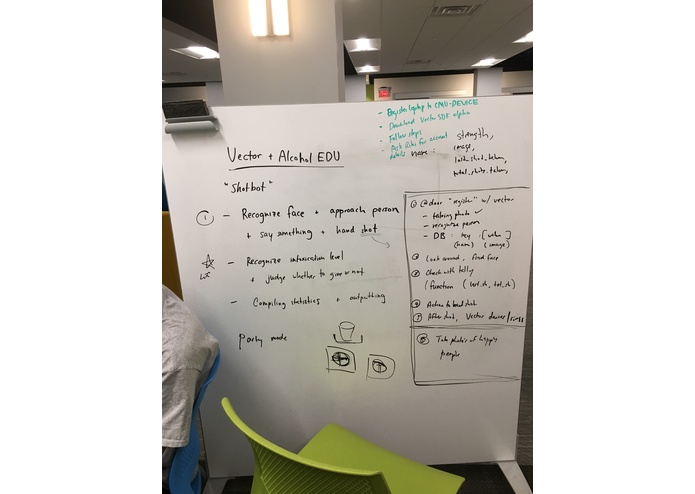 - Register laptop to CMU-DEVICE
- Download Vector SDK alpha
- Follow steps
- Ask for account
details
name:
strength,
image,
last_shot_taken,
total_shots_taken,
Vector + Alcohol EDU
"Shotbot"
① - Recognize face + approach person
+ say something + hand shot
- Recognize intoxication level
+ judge whether to give or not
- Compiling statistics + outputting
Party mode
① @door "register" w/ vector
- taking photo ✓
- recognize person
- DB : key : [value]
(name) (image)
② Look around, find face
③ Check with tally
(function (last_sh, tot_sh)
④ Action to hand shot
⑤ After shot, Vector dances/
⑥ Take photos of happy
people